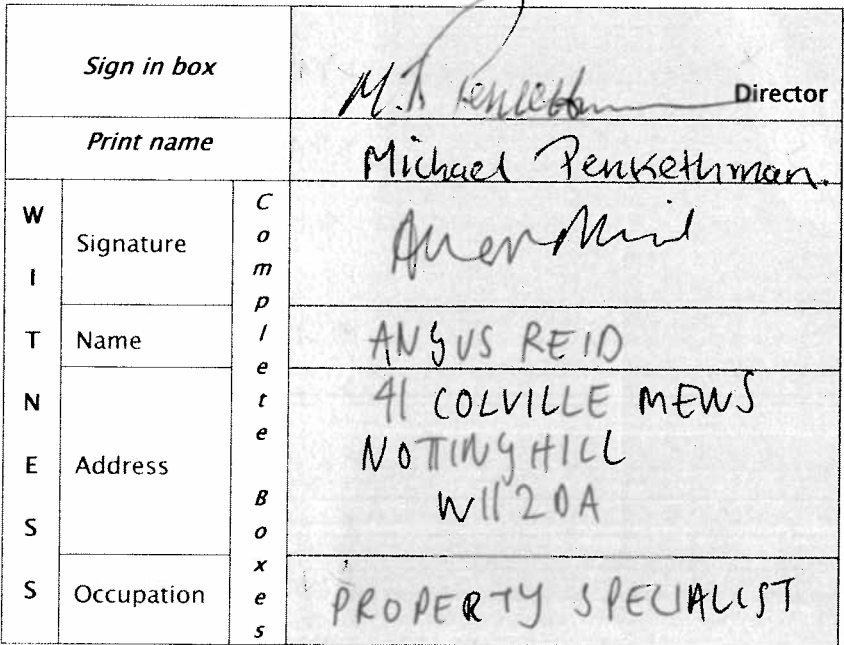 Sign in box
M. Penkethman Director
Print name
Michael Penkethman.
WITNESS
Complete Boxes
Signature
Name
ANGUS REID
Address
41 COLVILLE MEWS
NOTTING HILL
W11 2DA
Occupation
PROPERTY SPECIALIST